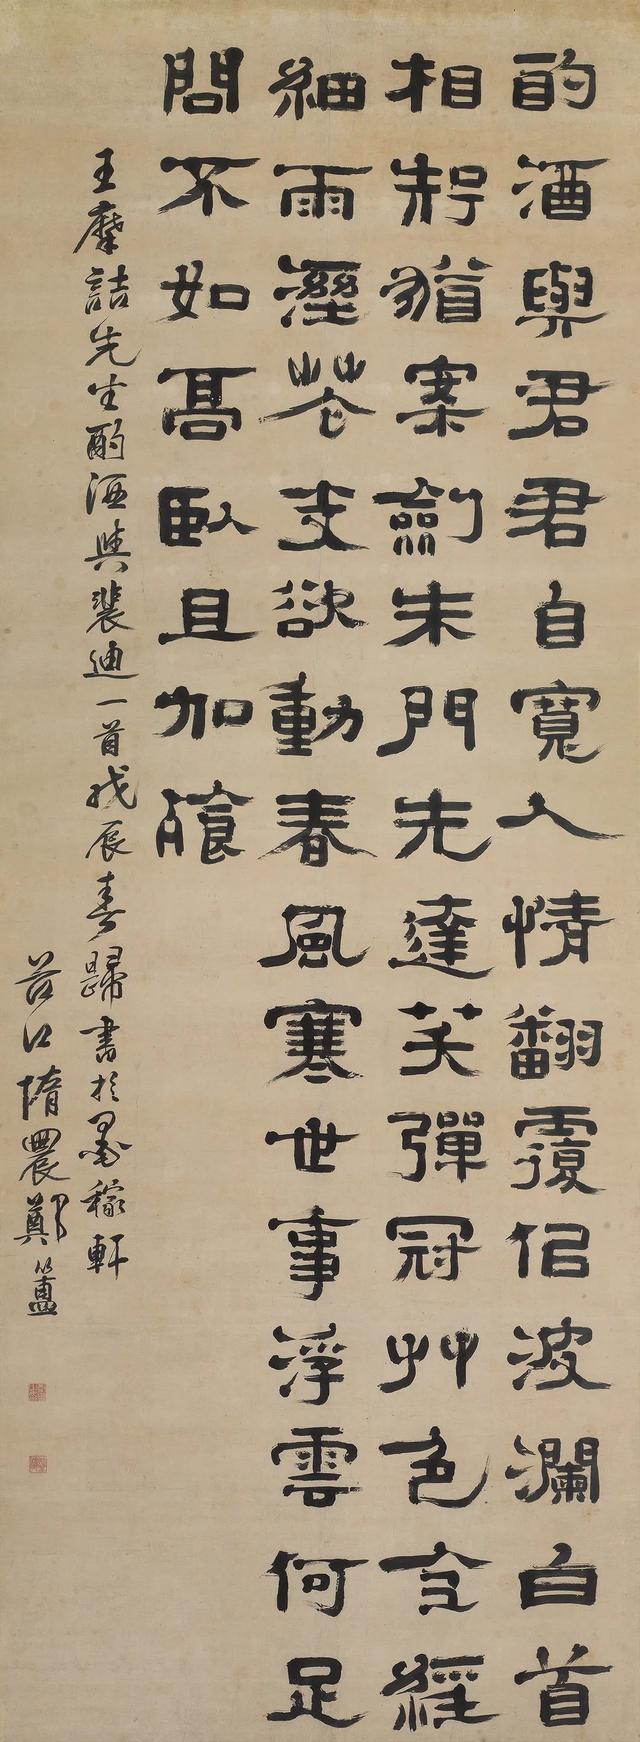 酌酒與君君自寬人情翻覆佀波瀾白首
相知猶案劍朱門先達笑彈冠艸色全經
細雨溼花枝欲動春風寒世事浮雲何足
問不如高臥且加餐
王摩詰先生酌酒與裴迪一首戊辰春歸書於墨稼軒
谷口惰農鄭簠